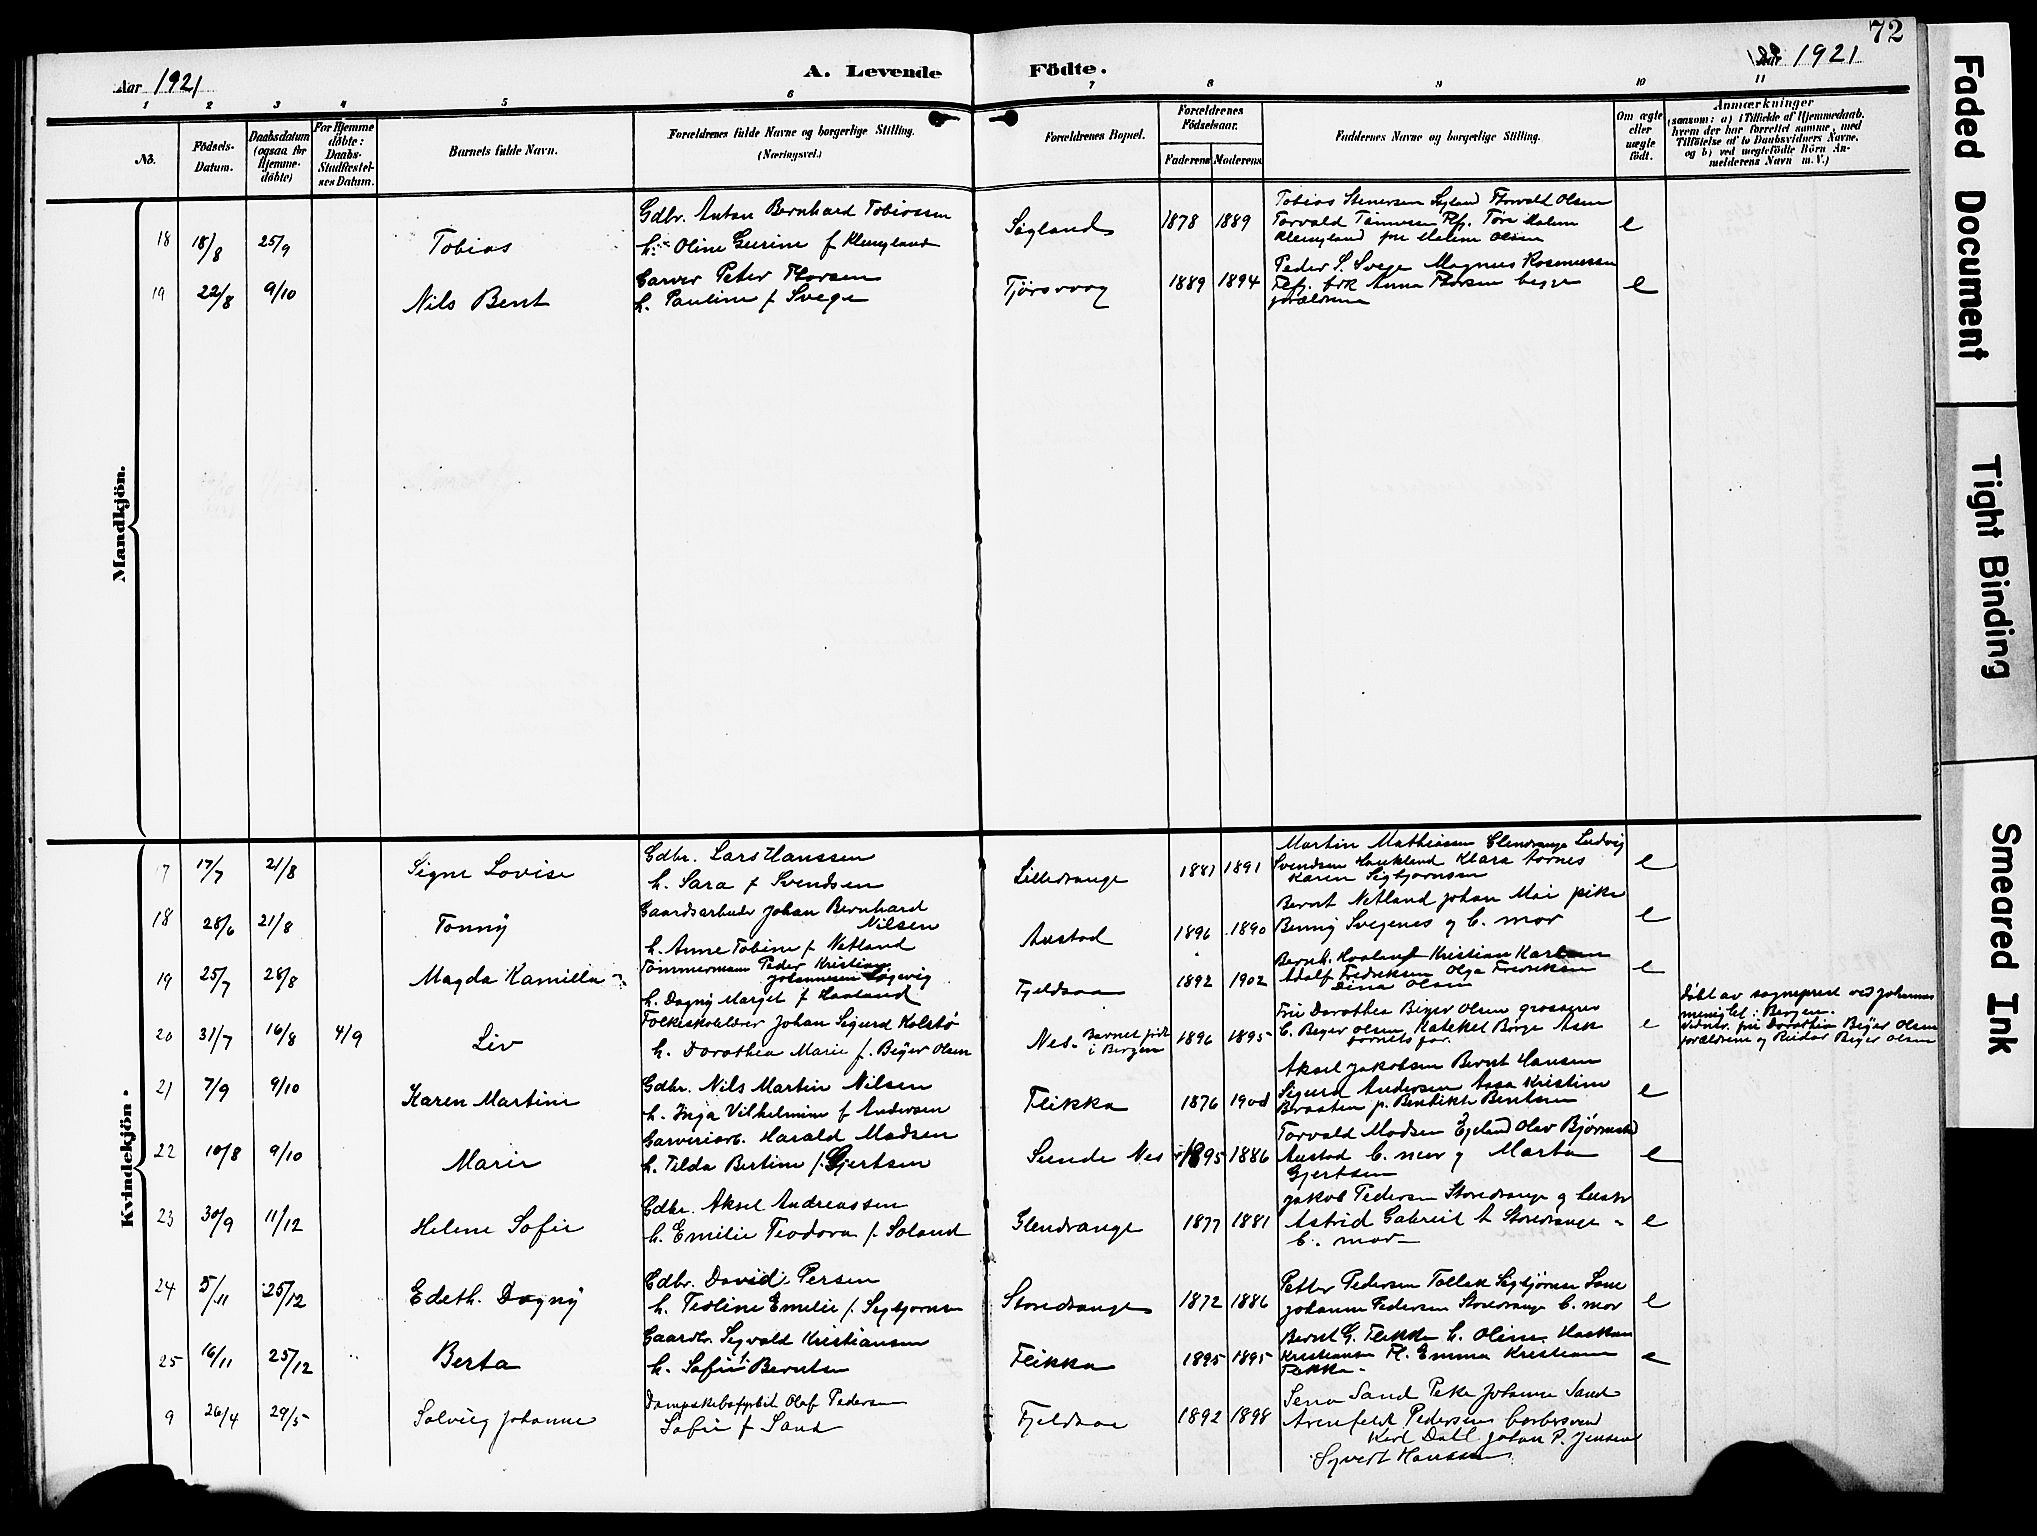 72
Aar 1921
A. Levende
Födte.
1921
1 2 3 4 5 6 7 8 9 10 11
No.
Födsels-
Datum.
Daabsdatum
(ogsaa for
Hjemme-
döbte)
For Hjemme
döbte:
Daabs-
Stadfæstel-
ses Datum.
Barnets fulde Navn.
Forældrenes fulde Navne og borgerlige Stilling.
(Næringsvei.)
Forældrenes Bopæl.
Forældrenes
Födselsaar.
Faderens
Moderens
Faddernes Navne og borgerlige Stilling.
Om ægte
eller
uægte
födt.
Anmærkninger
(saasom: a) i Tilfælde af Hjemmedaab,
hvem der har forrettet samme, med
Tilföielse af to Daabsvidners Navne.
og b) ved uægtefödte Börn An-
melderens Navn m. V.)
Mandkjön.
18 18/8 25/9 Tobias
Gdbr. Anton Bernhard Tobiassen
h. Oline Gurine f Klungland
Søgland 1878 1889
Tobias Stenersen Søgland Thorvald Olsen
Torvald Tønnesen Flf. Tore Malene
Klungland fru Malene Olsen
e
19 22/8 9/10 Nils Bent
Garver Peter Thorsen
h. Pauline f Svege
Tjørsvaag 1889 1894
Peder S. Svege Magnus Rasmussen
Flf. frk Anna Thorsen begge
forældrene
e
Kvindekjön.
17 17/7 21/8 Signe Lovise
Gdbr. Lars Hanssen
h. Sara f Svendsen
Lilledrange 1881 1891
Martin Mathiassen Glendrange Ludvig
Svendsen Haukland Klara Aarnes
Karen Sigbjørnsen
e
18 28/6 21/8 Tonny
Gaardsarbeider Johan Bernhard
Nilsen
h. Anne Tobine f Netland
Austad 1896 1890
Bernt Netland Johan Moi pike
Benny Svegenes og B. mor
e
19 25/7 28/8 Magda Kamilla
Tømmermann Peder Kristian
Johannesen Løgevig
h. Dagny Marget f Haaland
Fjeldsaa 1892 1902
Bernh. Haaland Kristian Karlsen
Adolf Fredriksen Olga Fredriksen
Dina Olsen
e
20 31/7 16/8 4/9 Liv
Folkeskolelærer Johan Sigurd Kolstø
h. Dorothea Marie f. Beyer Olsen
Nes. Barnet født
i Bergen 1896 1895
Fru Dorothea Beyer Olsen grosserer
C. Beyer Olsen, Katekel Børge Ask
barnets far.
e
Døbt av sogneprest ved Johannes
menighet i Bergen.
Vidner. fru Dorothea Beyer Olsen
forældrene og Reidar Beyer Olsen
21 7/9 9/10 Karen Martine
Gdbr. Nils Martin Nilsen
h. Inga Vilhelmine f Andersen
Flikka 1876 1900
Aksel Jakobsen Bernt Hansen
Sigurd Andersen Aasa Kristine
Braaten p. Bentikte Bentsen
e
22 10/8 9/10 Marie
Garveriarb. Harald Madsen
h. Tilda Bertine f. Gjertsen
Sunde Nes 1895 1886
Torvald Madsen Egeland Olav Bjørnestad
Austad B. mor og Marta
Gjertsen
e
23 30/9 11/12 Helene Sofie
Gdbr. Aksel Andreassen
h. Emilie Teodora f. Soland
Glendrange 1877 1881
Jakob Pedersen Storedrange og hustr
Astrid Gabriel A Storedrange
B. mor
e
24 5/11 25/12 Edeth. Dagny
Gdbr. David Persen
h. Teoline Emilie f. Segbjørns
Storedrange 1872 1886
Petter Pedersen Tollak Segbjørnsen
Johanne Pedersen Storedrange B. mor
e
25 16/11 25/12 Berta
Gaardbr. Sigvald Kristiansen
h. Sofie f. Berntsen
Flikka 1895 1895
Bernt G. Flikka h. Oline Haakon
Kristiansen Fl. Emma Kristiansen
Flikka
e
9 26/4 29/5 Solveig Johanne
Dampskibsfyrbøt. Olaf Pedersen
Sofie f Sand
Fjeldsaa 1892 1898
Lena Sand Pike Johanne Sand
Arenfeldt Pedersen barbersvend
Karl Dahl Johan P. Jensen
Syvert Hanssen
Faded Document
Tight Binding
Smeared Ink